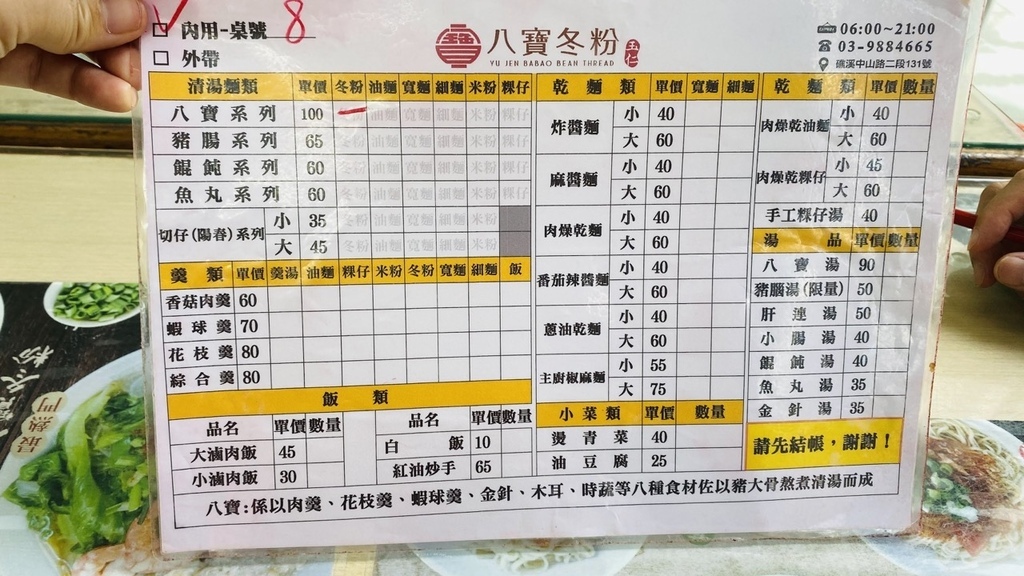 內用-桌號 8
外帶
八寶冬粉 玉仁
YU JEN BABAO BEAN THREAD
06:00~21:00
03-9884665
礁溪中山路二段131號
清湯麵類 單價 冬粉 油麵 寬麵 細麵 米粉 粿仔
八寶系列 100 冬粉 油麵 寬麵 細麵 米粉 粿仔
豬腸系列 65 冬粉 油麵 寬麵 細麵 米粉 粿仔
餛飩系列 60 冬粉 油麵 寬麵 細麵 米粉 粿仔
魚丸系列 60 冬粉 油麵 寬麵 細麵 米粉 粿仔
切仔(陽春)系列 小 35 冬粉 油麵 寬麵 細麵 米粉
大 45 冬粉 油麵 寬麵 細麵 米粉
羹類 單價 羹湯 油麵 粿仔 米粉 冬粉 寬麵 細麵 飯
香菇肉羹 60
蝦球羹 70
花枝羹 80
綜合羹 80
飯類
品名 單價 數量 品名 單價 數量
大滷肉飯 45 白飯 10
小滷肉飯 30 紅油炒手 65
乾麵類 單價 寬麵 細麵
炸醬麵 小 40
大 60
麻醬麵 小 40
大 60
肉燥乾麵 小 40
大 60
番茄辣醬麵 小 40
大 60
蔥油乾麵 小 40
大 60
主廚椒麻麵 小 55
大 75
小菜類 單價 數量
燙青菜 40
油豆腐 25
乾麵類 單價 數量
肉燥乾油麵 小 40
大 60
肉燥乾粿仔 小 45
大 60
手工粿仔湯 40
湯品 單價 數量
八寶湯 90
豬腦湯(限量) 50
肝連湯 50
小腸湯 40
餛飩湯 40
魚丸湯 35
金針湯 35
請先結帳，謝謝！
八寶:係以肉羹、花枝羹、蝦球羹、金針、木耳、時蔬等八種食材佐以豬大骨熬煮清湯而成
最熱門